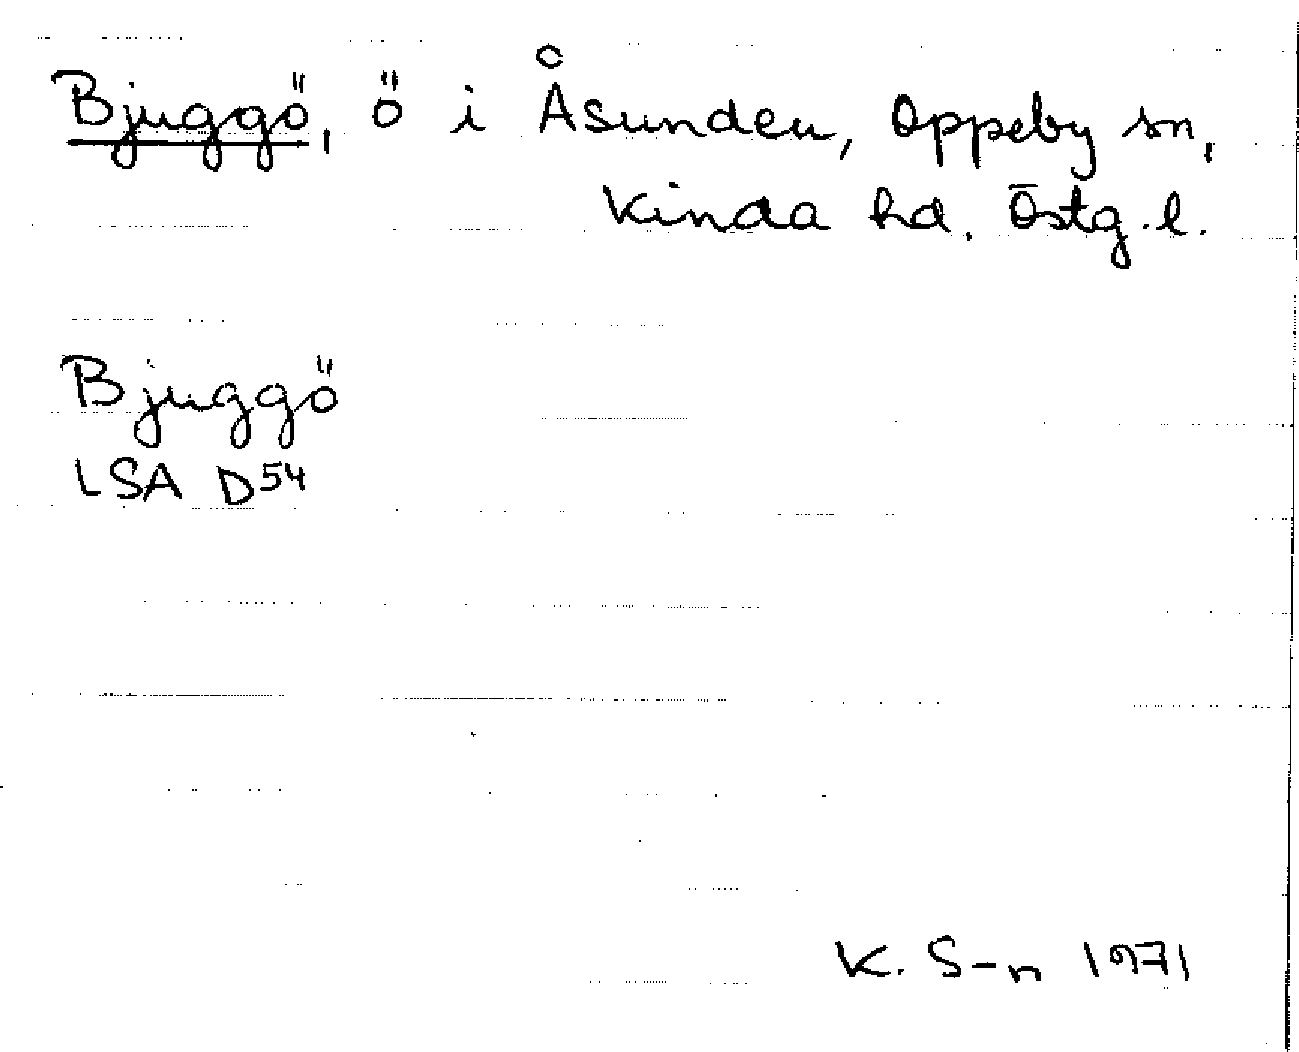 Bjuggö, ö i Åsunden, Oppeby sn,
Kinda hd. Östg.l.
Bjuggö
LSA D54
K. S-n 1971